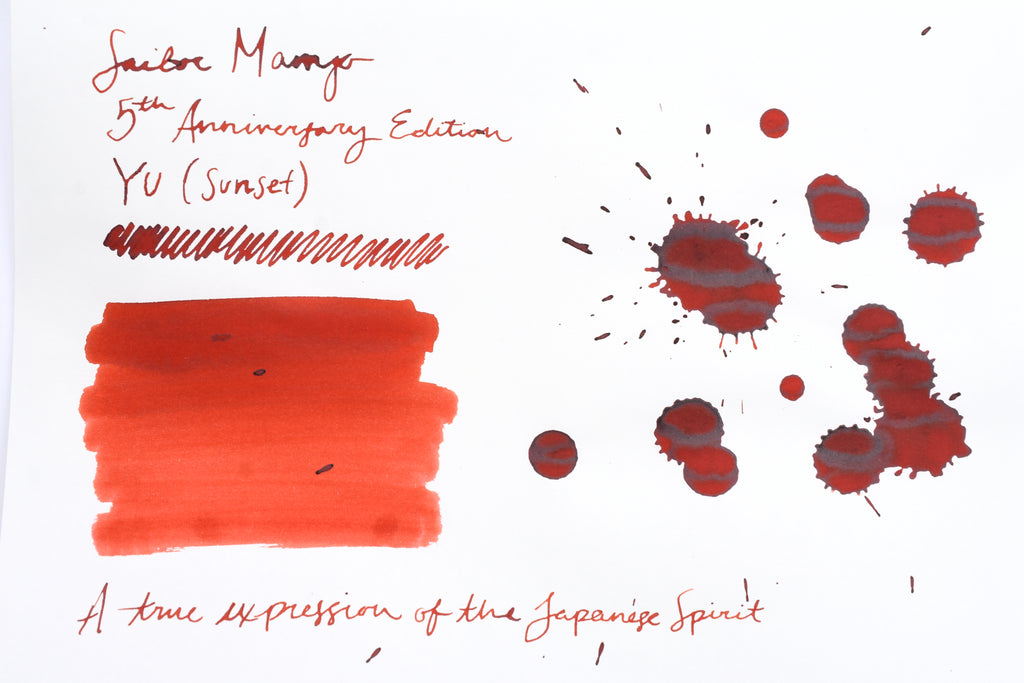 Sailor Manyo
5th Anniversary Edition
Yu (Sunset)
A true expression of the Japanese Spirit